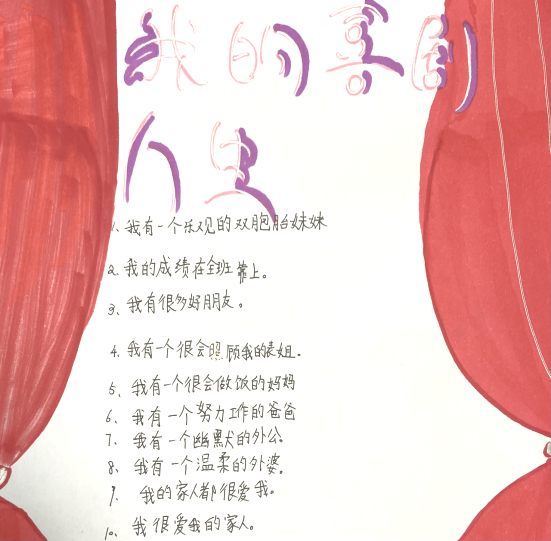 我的喜剧
人生
1、我有一个乐观的双胞胎妹妹
2、我的成绩在全班靠上。
3、我有很多好朋友。
4、我有一个很会照顾我的表姐。
5、我有一个很会做饭的妈妈
6、我有一个努力工作的爸爸
7、我有一个幽默的外公
8、我有一个温柔的外婆。
9、我的家人都很爱我。
10、我很爱我的家人。